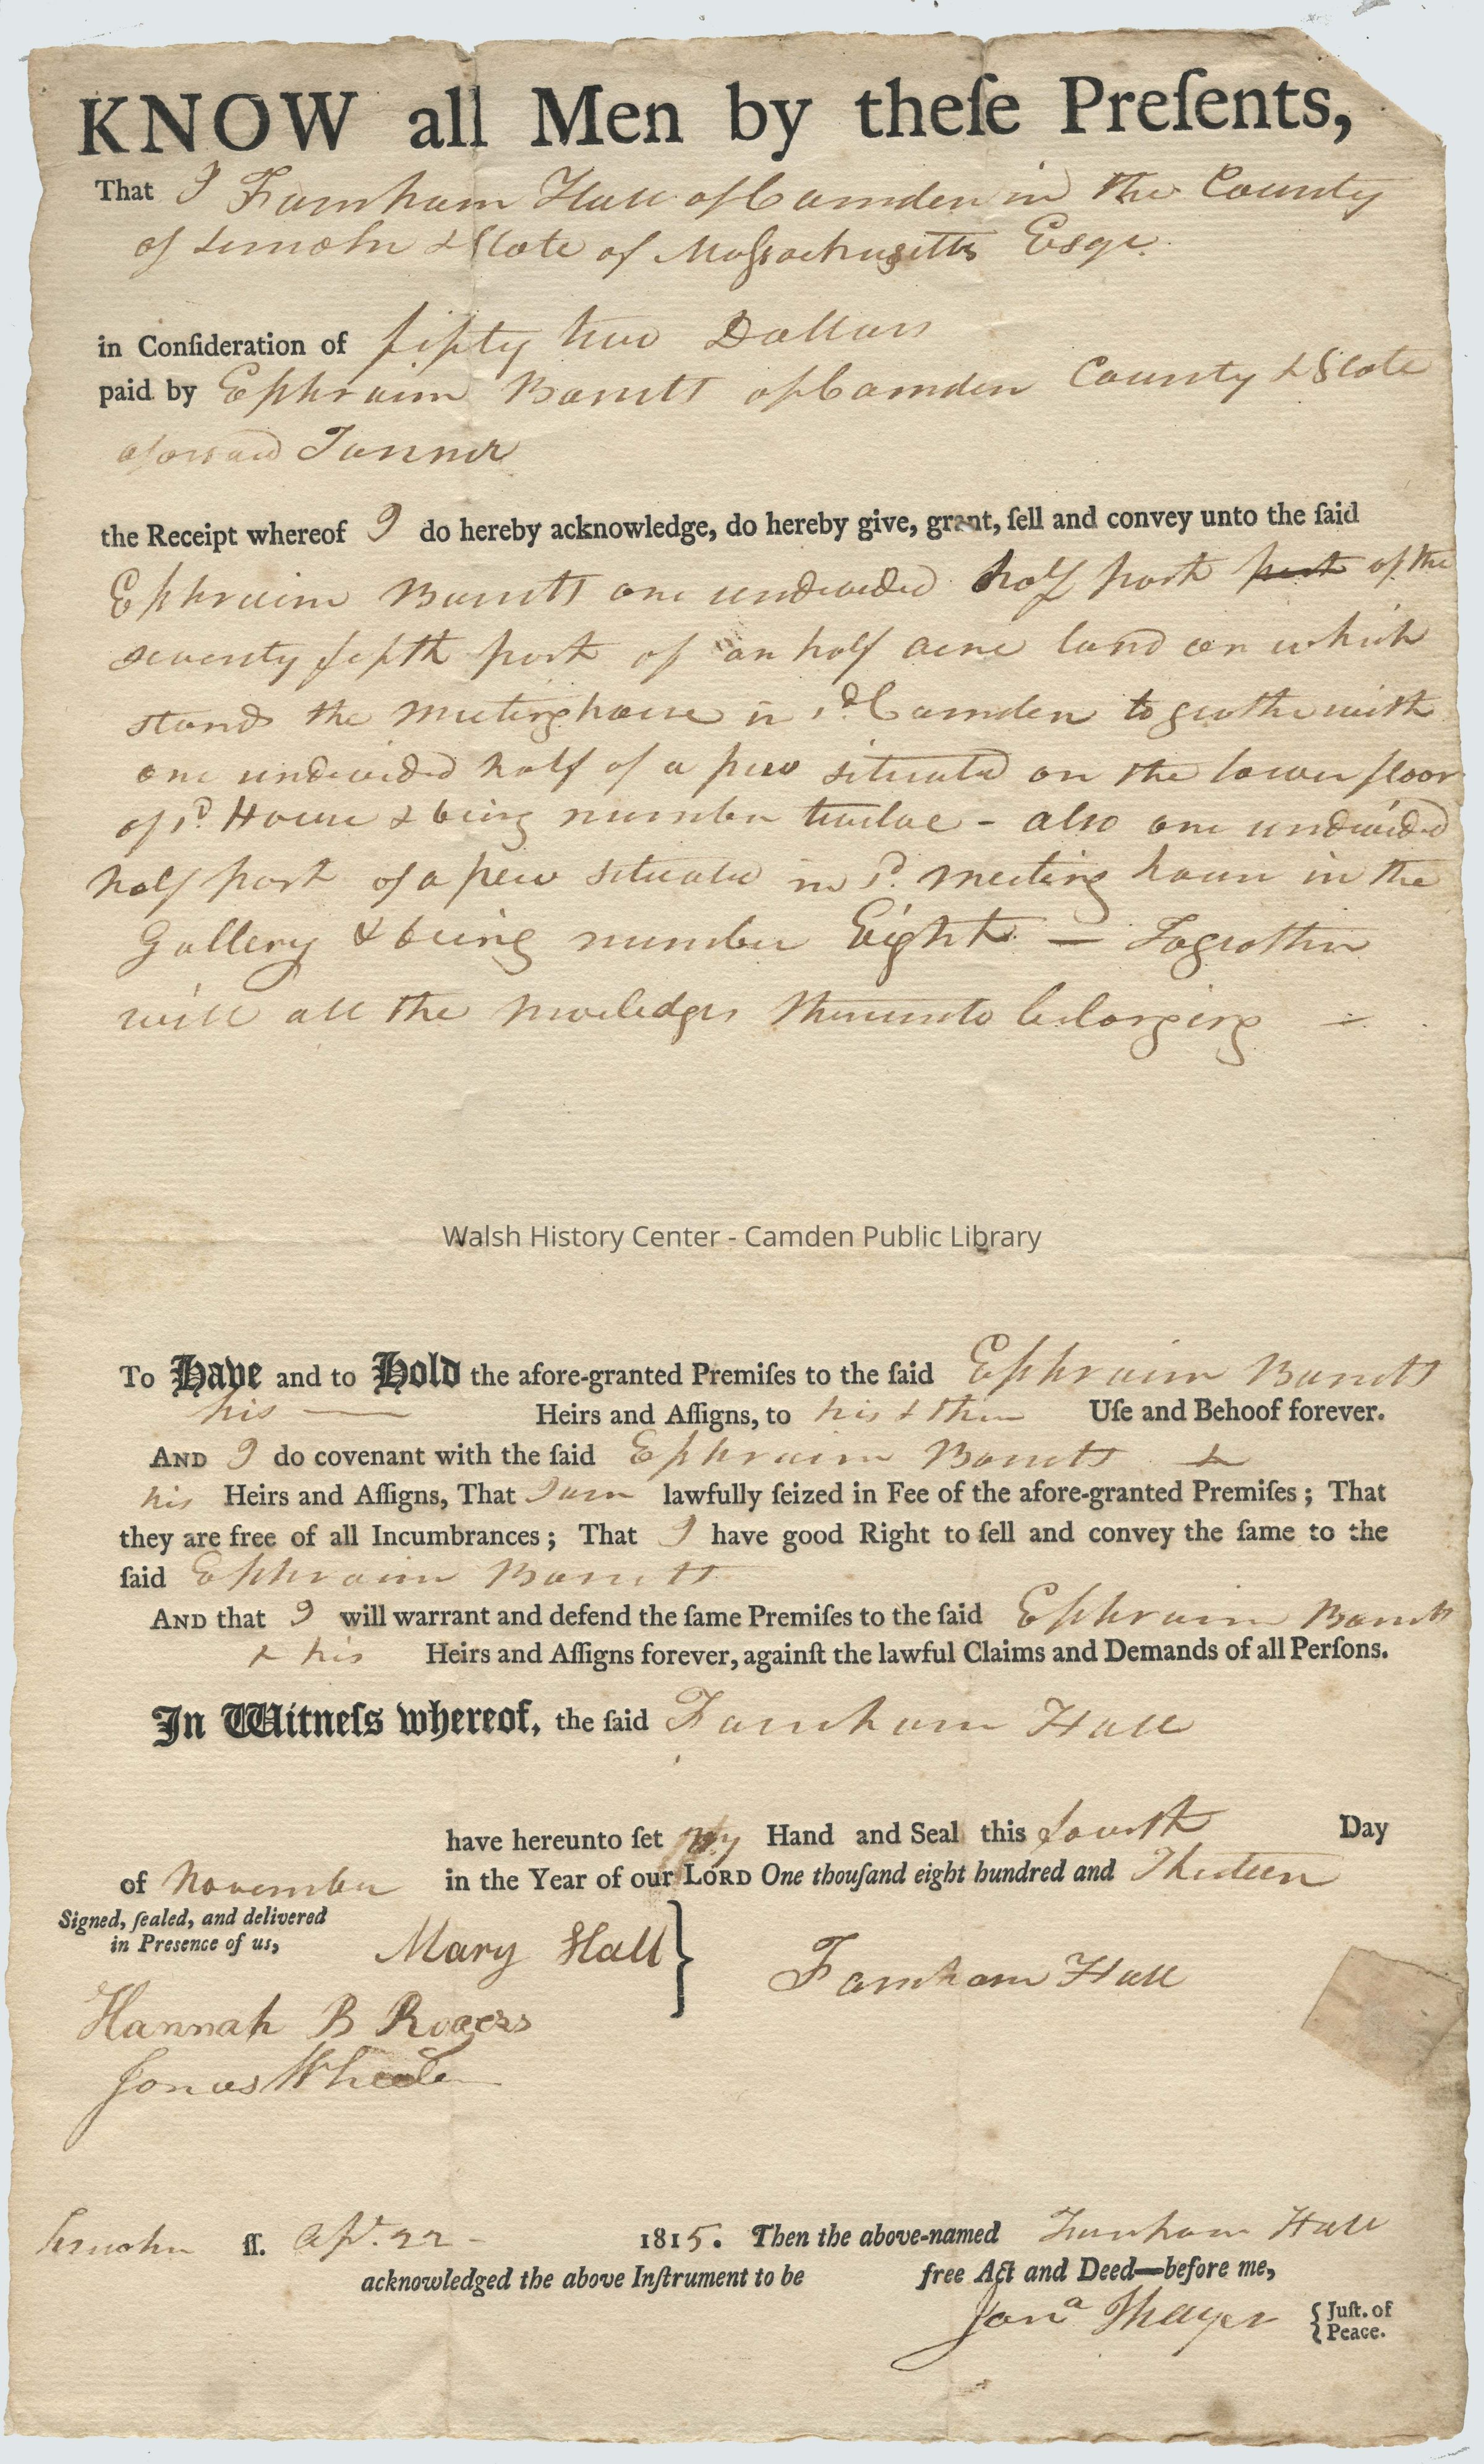 KNOW all Men by theſe Preſents,
That I Farnham Hall of Camden in the County
of Lincoln & State of Maſsachusetts Esqr.
in Conſideration of fifty two Dollars
paid by Ephraim Barrett of Camden County & State
aforesaid Tanner
the Receipt whereof I do hereby acknowledge, do hereby give, grant, ſell and convey unto the ſaid
Ephraim Barrett one undivided half part part of the
seventy fifth part of an half acre land on which
stands the meetinghouse in sd. Camden together with
one undivided half of a pew situated on the lower floor
of sd. House & being number twelve - also one undivided
half part of a pew situated in sd. meeting house in the
Gallery & being number Eight — Together
with all the priviledges thereunto belonging —
Walsh History Center - Camden Public Library
To Have and to Hold the afore-granted Premiſes to the ſaid Ephraim Barrett
his — Heirs and Aſſigns, to his & their Uſe and Behoof forever.
AND I do covenant with the ſaid Ephraim Barrett &
his Heirs and Aſſigns, That I am lawfully ſeized in Fee of the afore-granted Premiſes; That
they are free of all Incumbrances; That I have good Right to ſell and convey the ſame to the
ſaid Ephraim Barrett
AND that I will warrant and defend the ſame Premiſes to the ſaid Ephraim Barrett
& his Heirs and Aſſigns forever, againſt the lawful Claims and Demands of all Perſons.
In Witneſs whereof, the ſaid Farnham Hall
have hereunto ſet my Hand and Seal this fourth Day
of November in the Year of our LORD One thouſand eight hundred and Thirteen
Signed, ſealed, and delivered
in Presence of us,
Mary Hall } Farnham Hall
Hannah B Rogers
Jonas Wheeler
Lincoln ſſ. Apr. 22 - 1815. Then the above-named Farnham Hall
acknowledged the above Inſtrument to be free Act and Deed—before me,
Jona Thayer { Juſt. of
Peace.